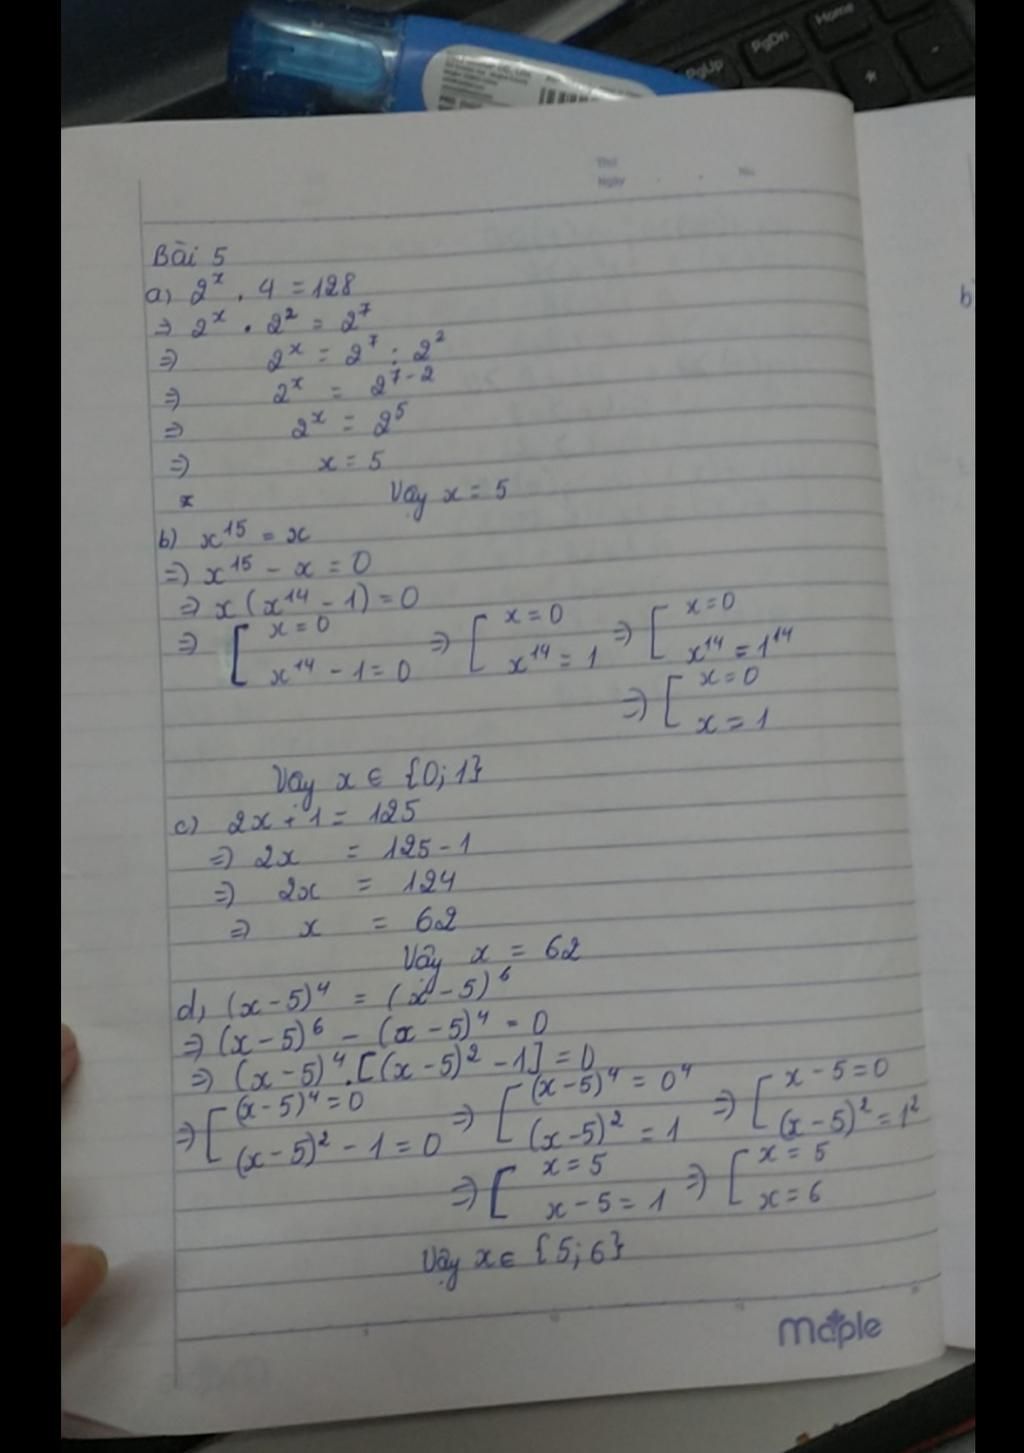 PgUp
PgDn
Home
*
-
Thứ
Ngày
No.
Bài 5
a) 2^x . 4 = 128
=> 2^x . 2^2 = 2^7
=> 2^x = 2^7 : 2^2
=> 2^x = 2^{7-2}
=> 2^x = 2^5
=> x = 5
Vậy x = 5
b) x^15 = x
=> x^15 - x = 0
=> x(x^14 - 1) = 0
=> [ x = 0 => [ x = 0 => [ x = 0
x^14 - 1 = 0 x^14 = 1 x^14 = 1^14
=> [ x = 0
x = 1
Vay x ∈ {0; 1}
c) 2x + 1 = 125
=> 2x = 125 - 1
=> 2x = 124
=> x = 62
Vậy x = 62
d, (x - 5)^4 = (x - 5)^6
=> (x - 5)^6 - (x - 5)^4 = 0
=> (x - 5)^4 . [(x - 5)^2 - 1] = 0
=> [ (x - 5)^4 = 0 => [ (x - 5)^4 = 0^4 => [ x - 5 = 0
(x - 5)^2 - 1 = 0 (x - 5)^2 = 1 (x - 5)^2 = 1^2
=> [ x = 5 => [ x = 5
x - 5 = 1 x = 6
Vậy x ∈ {5; 6}
Maple
b